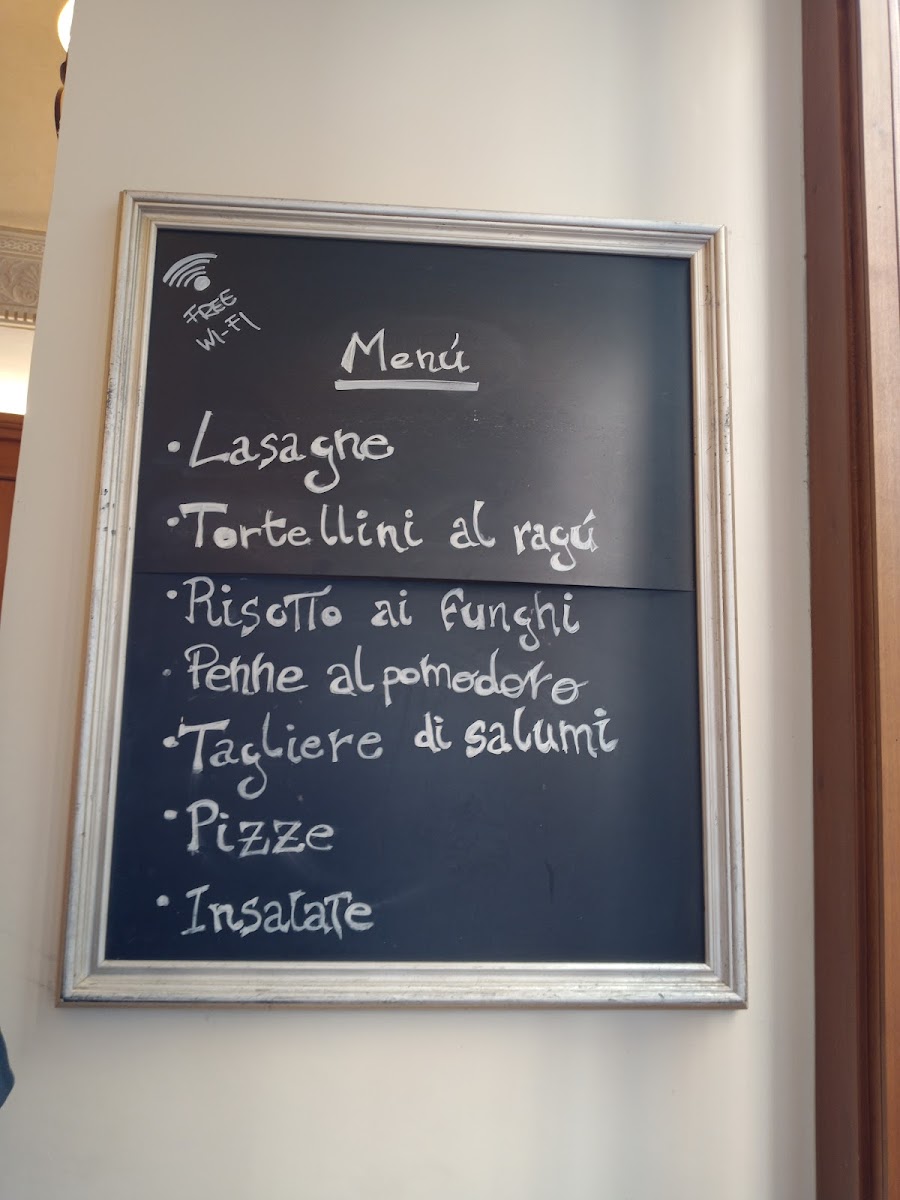 FREE
WI-FI
Menú
• Lasagne
• Tortellini al ragú
• Risotto ai funghi
• Penne al pomodoro
• Tagliere di salumi
• Pizze
• Insalate